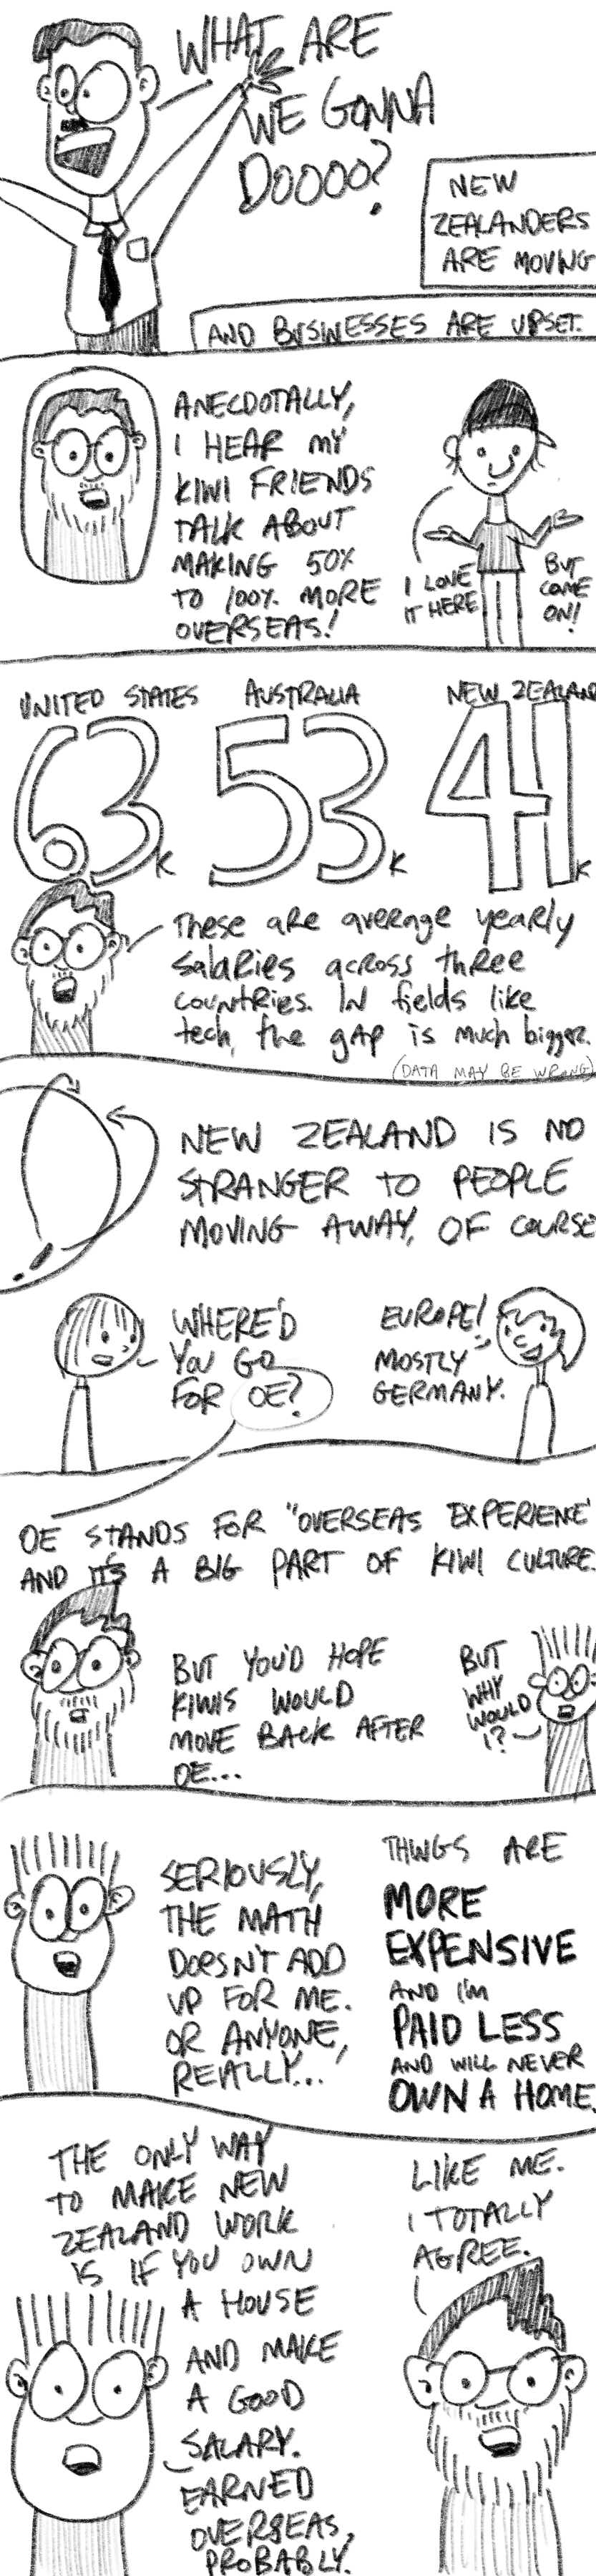 WHAT ARE
WE GONNA
DOOOO?
NEW
ZEALANDERS
ARE MOVING
AND BUSINESSES ARE UPSET.
ANECDOTALLY,
I HEAR MY
KIWI FRIENDS
TALK ABOUT
MAKING 50%
TO 100% MORE
OVERSEAS!
I LOVE
IT HERE
BUT
COME
ON!
UNITED STATES
63K
AUSTRALIA
53K
NEW ZEALAND
41K
THESE ARE AVERAGE YEARLY
SALARIES ACROSS THREE
COUNTRIES. IN FIELDS LIKE
TECH, THE GAP IS MUCH BIGGER.
(DATA MAY BE WRONG)
NEW ZEALAND IS NO
STRANGER TO PEOPLE
MOVING AWAY, OF COURSE
WHERE'D
YOU GO
FOR OE?
EUROPE!
MOSTLY
GERMANY.
OE STANDS FOR "OVERSEAS EXPERIENCE"
AND IT'S A BIG PART OF KIWI CULTURE.
BUT YOU'D HOPE
KIWIS WOULD
MOVE BACK AFTER
OE...
BUT
WHY
WOULD
I?
SERIOUSLY,
THE MATH
DOESN'T ADD
UP FOR ME.
OR ANYONE,
REALLY...
THINGS ARE
MORE
EXPENSIVE
AND I'M
PAID LESS
AND WILL NEVER
OWN A HOME.
THE ONLY WAY
TO MAKE NEW
ZEALAND WORK
IS IF YOU OWN
A HOUSE
AND MAKE
A GOOD
SALARY.
EARNED
OVERSEAS,
PROBABLY.
LIKE ME.
I TOTALLY
AGREE.